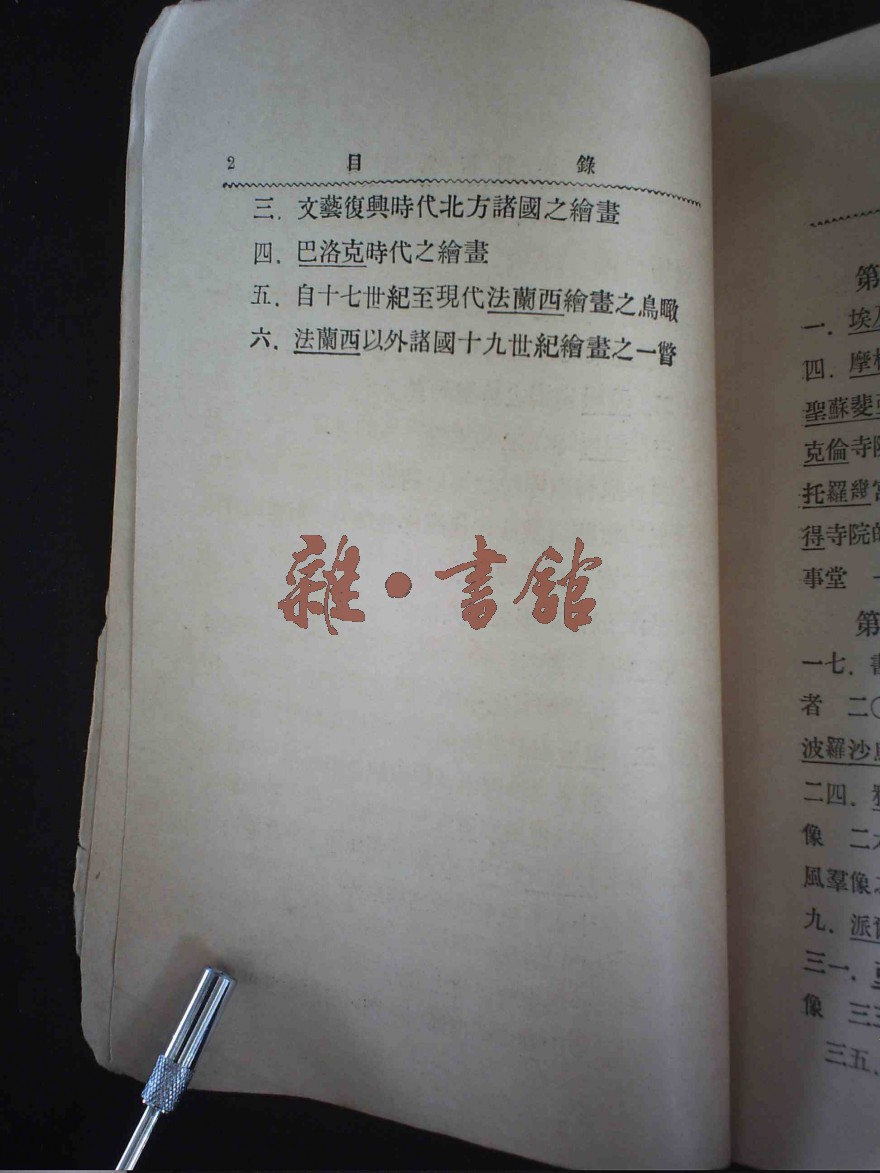 2 目錄
三. 文藝復興時代北方諸國之繪畫
四. 巴洛克時代之繪畫
五. 自十七世紀至現代法蘭西繪畫之鳥瞰
六. 法蘭西以外諸國十九世紀繪畫之一瞥
雜·書館
第
一. 埃及
四. 摩
聖蘇斐
克倫寺院
托羅幾宮
得寺院的
事堂 一
第
一七.
者 二〇
波羅沙
二四.
像 二六
風羣像
九. 派
三一.
像 三三
三五.